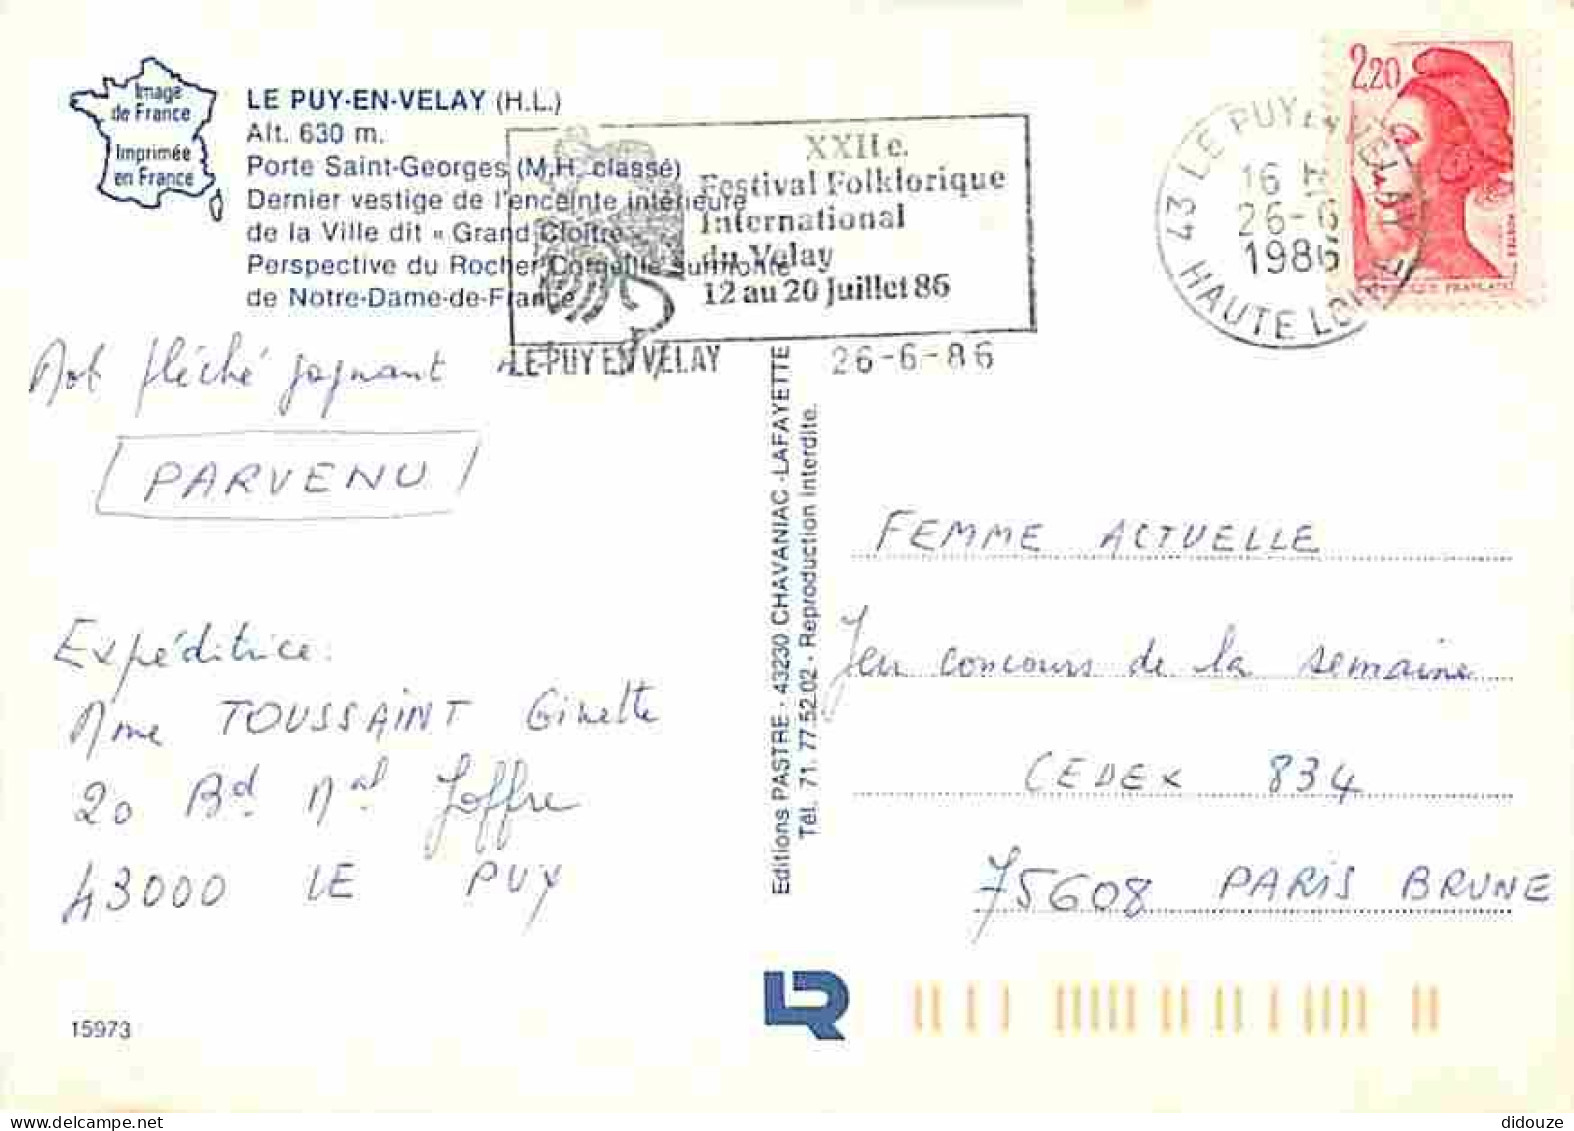 Image
de France
Imprimée
en France
LE PUY-EN-VELAY (H.L.)
Alt. 630 m.
Porte Saint-Georges (M.H. classé)
Dernier vestige de l'enceinte intérieure
de la Ville dit « Grand Cloître »
Perspective du Rocher Corneille surmonté
de Notre-Dame-de-France
XXIIe.
Festival Folklorique
International
du Velay
12 au 20 Juillet 86
LE PUY EN VELAY
26-6-86
43 LE PUY EN VELAY
16 H
26-6
1986
HAUTE LOIRE
2,20
Mot fléché gagnant
PARVENU
Expéditrice:
Mme TOUSSAINT Ginette
20 Bd Mal Joffre
43000 LE PUY
15973
Editions PASTRE - 43230 CHAVANIAC-LAFAYETTE
Tél. 71. 77.52.02 - Reproduction interdite.
FEMME ACTUELLE
Jeu concours de la semaine
CEDEX 834
75608 PARIS BRUNE
LR
delcampe.net
didouze